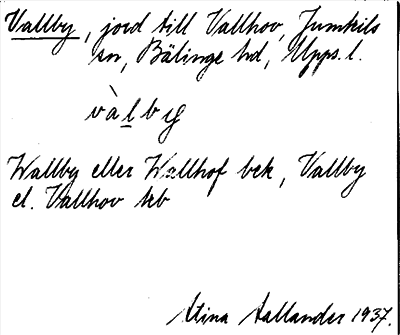 Vallby, jord till Vallhov, Jumkils
sn, Bälinge hd, Upps. l.
vàlby
Wallby eller Wallhof bek, Vallby
el. Vallhov krb
Stina Sallander 1937.